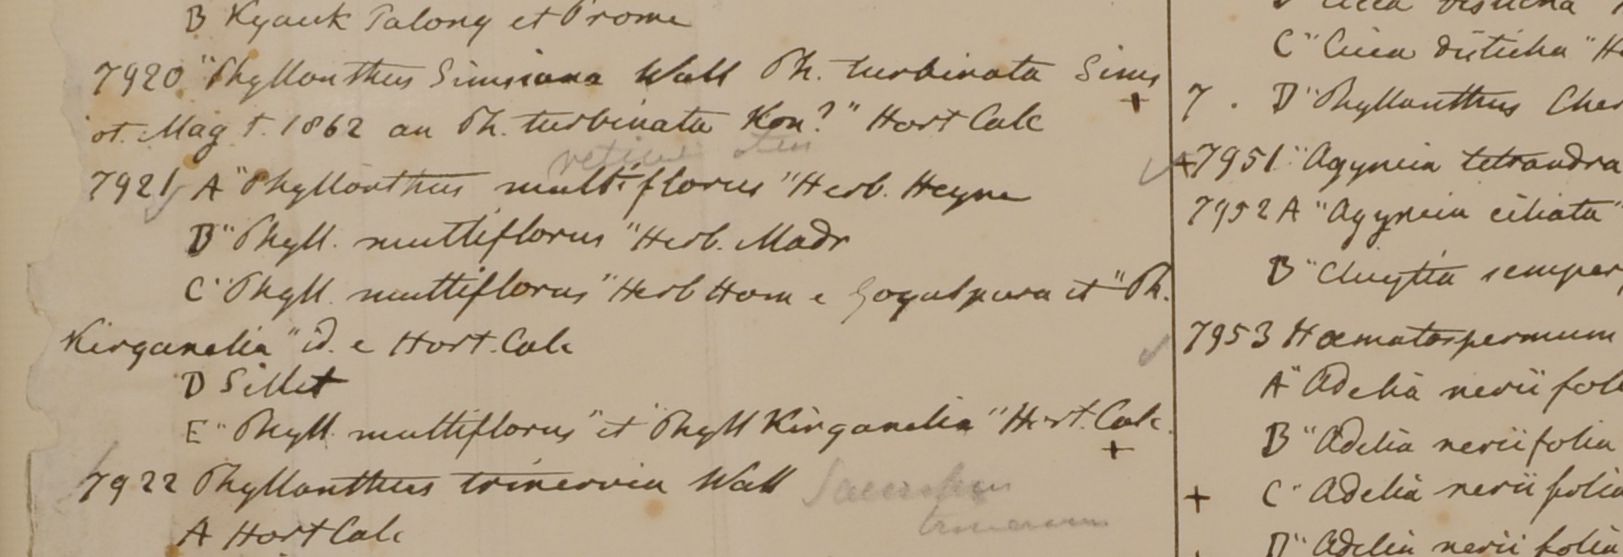 B Kyauk Talong et Prome
7920 "Phyllanthus Simsiana Wall Ph. turbinata Sims
ot. Mag t. 1862 an Ph. turbinata Kon?" Hort Calc
7921 A "Phyllanthus multiflorus" Herb. Heyne
B "Phyll. multiflorus" Herb. Madr
C "Phyll. multiflorus" Herb Ham e Goyalpara et "Ph.
Kirganelia" id. e Hort. Calc
D Sillet
E "Phyll. multiflorus" et "Phyll Kirganelia" Hort. Calc.
7922 Phyllanthus trinervia Wall
trinervium
A Hort Calc
C "Cicca disticha" H
7. D "Phyllanthus Che
7951 "Agyneia tetrandra
7952 A "Agyneia ciliata"
B "Cluytia semper
7953 Hæmatospermum
A "Adelia neriifol
B "Adelia neriifolia
C "Adelia neriifolia
D "Adelia neriifolia